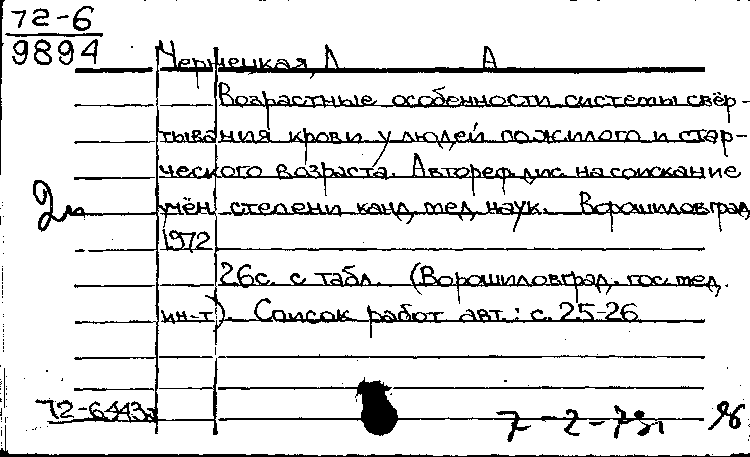 72-6
9894
Чернецкая, Л А
Возрастные особенности системы свёр-
тывания крови у людей пожилого и стар-
ческого возраста. Автореф. дис. на соискание
учён. степени канд. мед. наук. Ворошиловград,
1972
26с. с табл. (Ворошиловград. гос. мед.
ин-т). Список работ авт.: с. 25-26